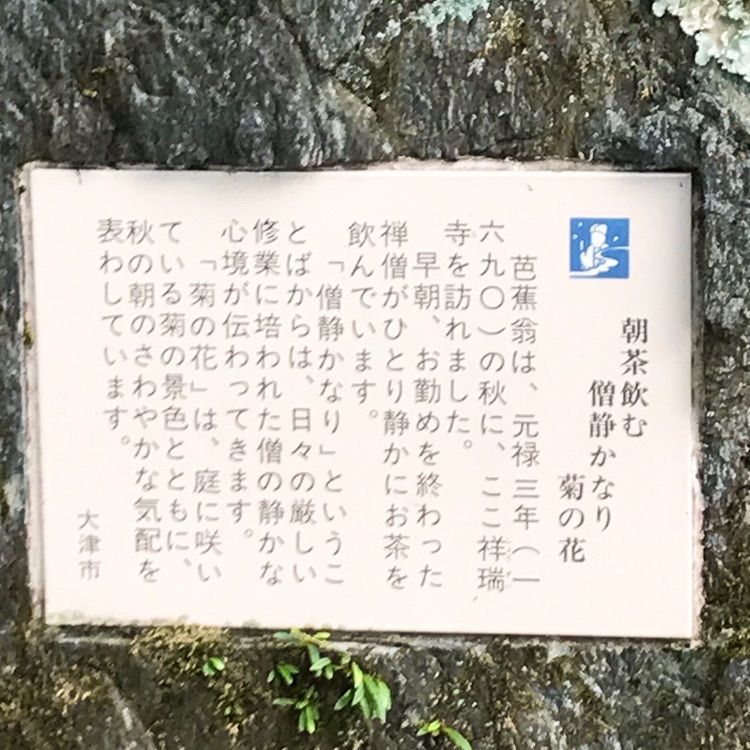 朝茶飲む
僧静かなり
菊の花
芭蕉翁は、元禄三年（一
六九〇）の秋に、ここ祥瑞
寺を訪れました。
早朝、お勤めを終わった
禅僧がひとり静かにお茶を
飲んでいます。
「僧静かなり」というこ
とばからは、日々の厳しい
修業に培われた僧の静かな
心境が伝わってきます。
「菊の花」は、庭に咲い
ている菊の景色とともに、
秋の朝のさわやかな気配を
表わしています。
大津市